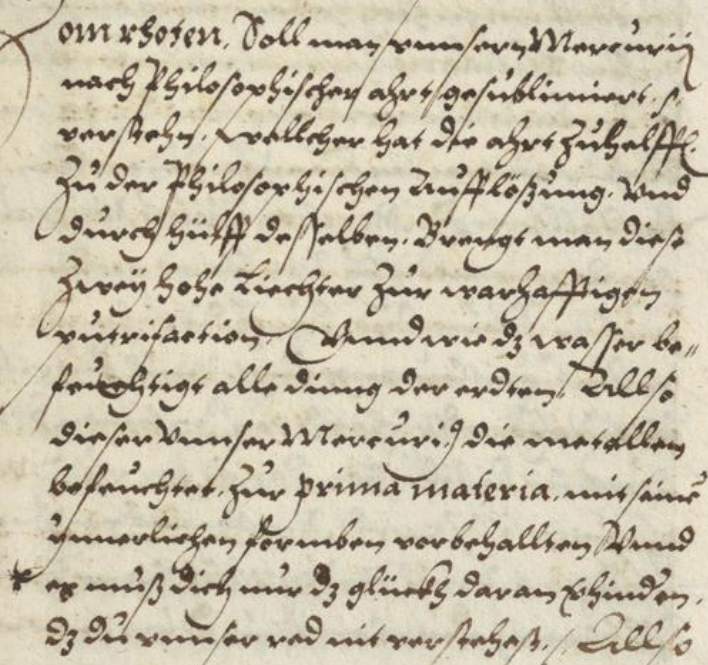 om rhoten, Soll man vnnsern Mercurij
nach Philosophischer ahrt gesublimiert, s.
verstehn. wellcher hat die ahrt Zuhelff.
Zu der Philosophischen Aufflößung. Vnd
durch hülff desselben. Brengt man diese
Zweÿ hohe Liechter Zur warhafftigen
putrifaction. Vnnd wie dz wasser be„
feuchtigt alle dinng der erdten, Allso
dieser Vnnser Mercuri9 die metallen
befeuchtet. Zur prima materia. mit seine
ynnerlichen formben vorbehallten Vnnd
es muß dich nur dz glückh daran hinden,
dz du vnnser red nit verstehest. / Allso